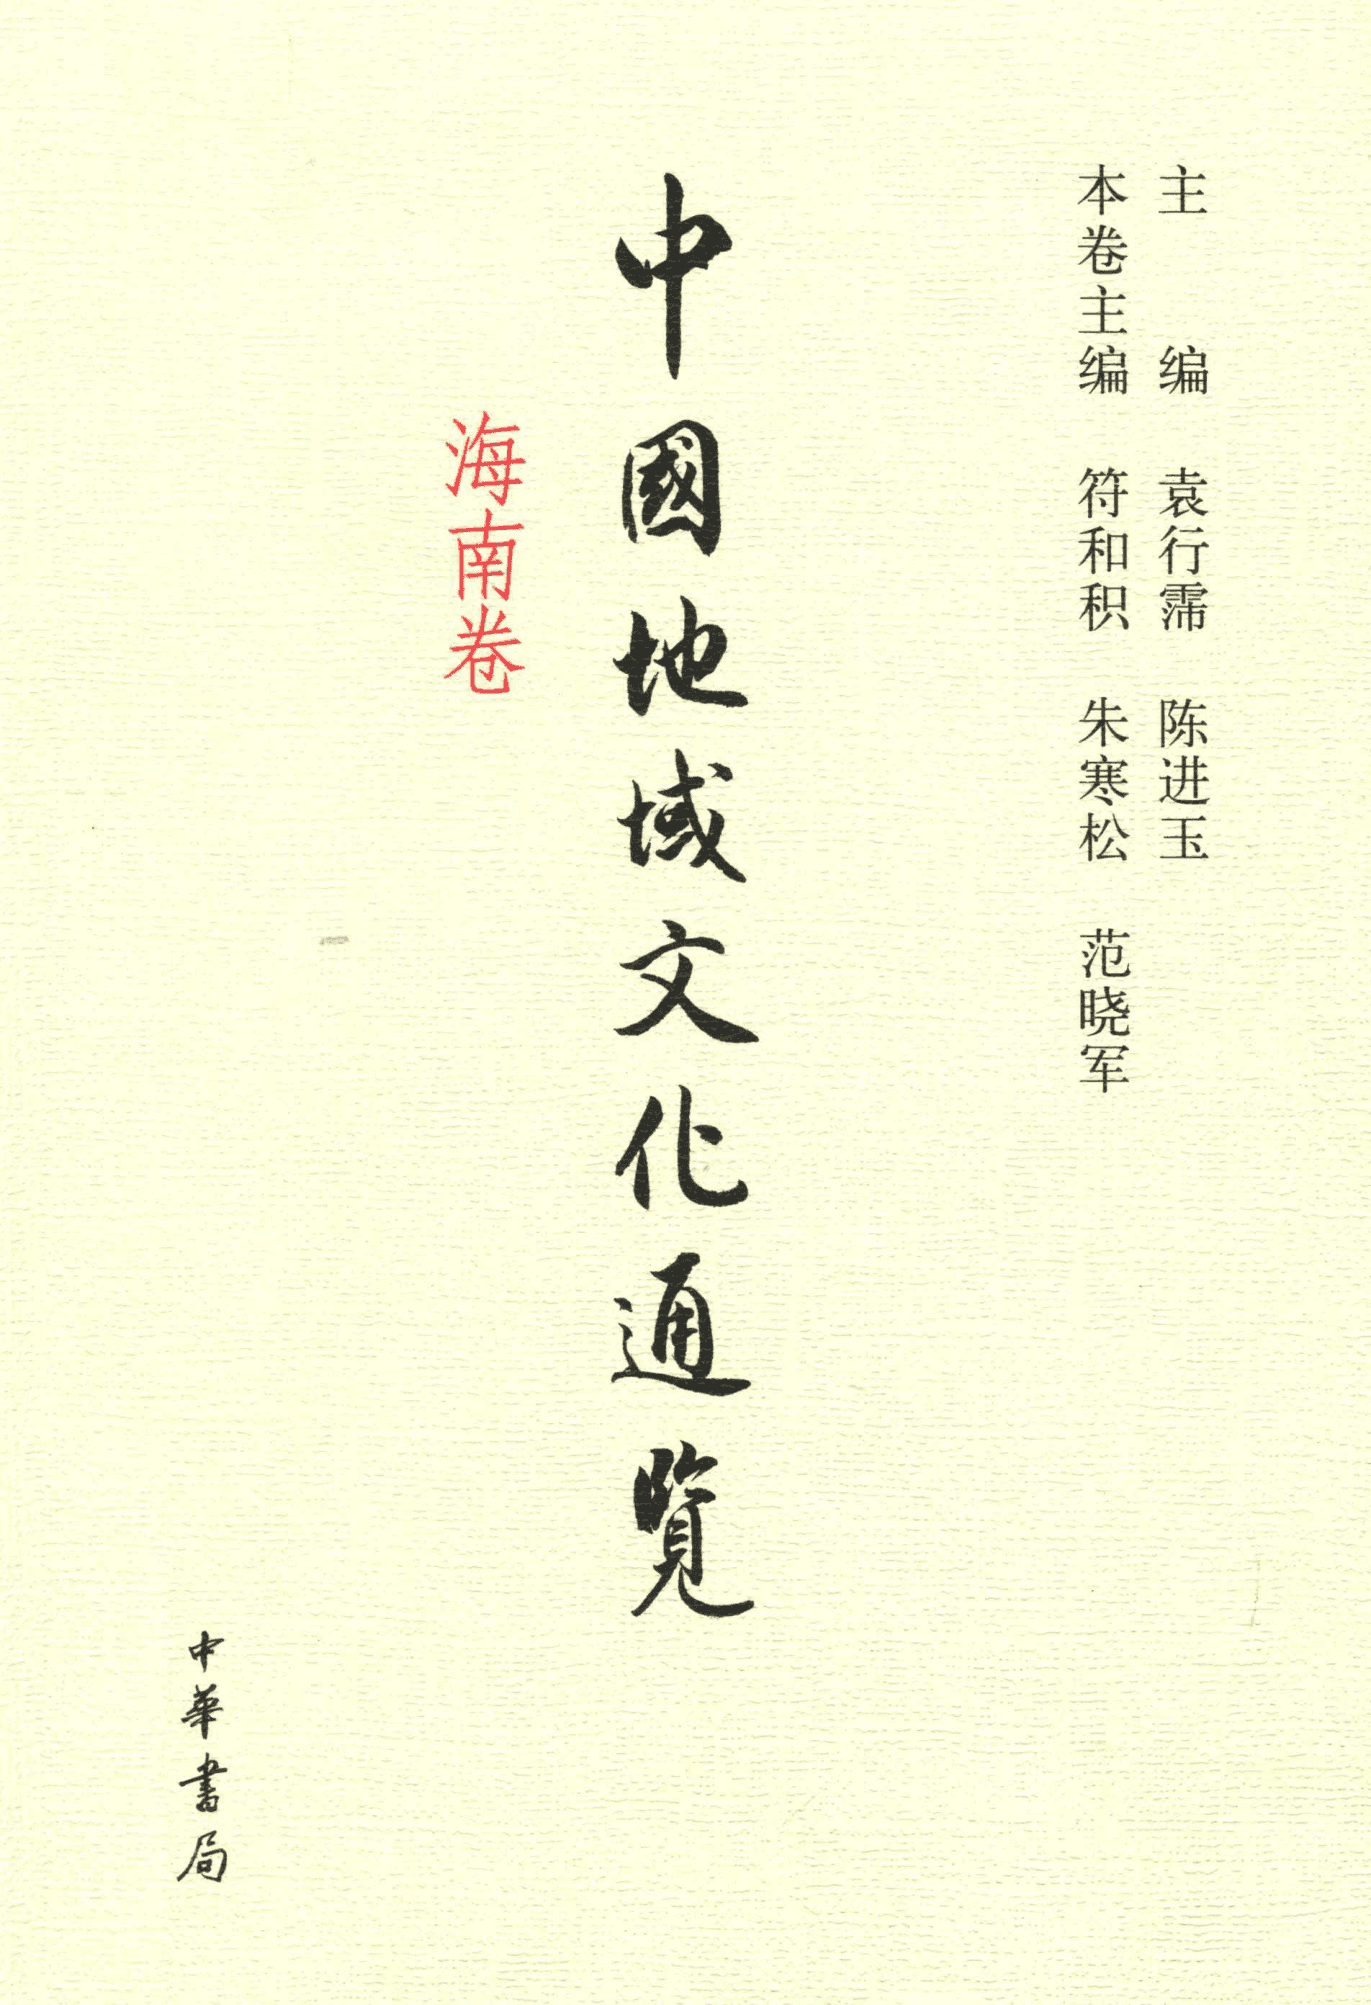 主编 袁行霈 陈进玉
本卷主编 符和积 朱寒松 范晓军
中國地域文化通覽
海南卷
中華書局